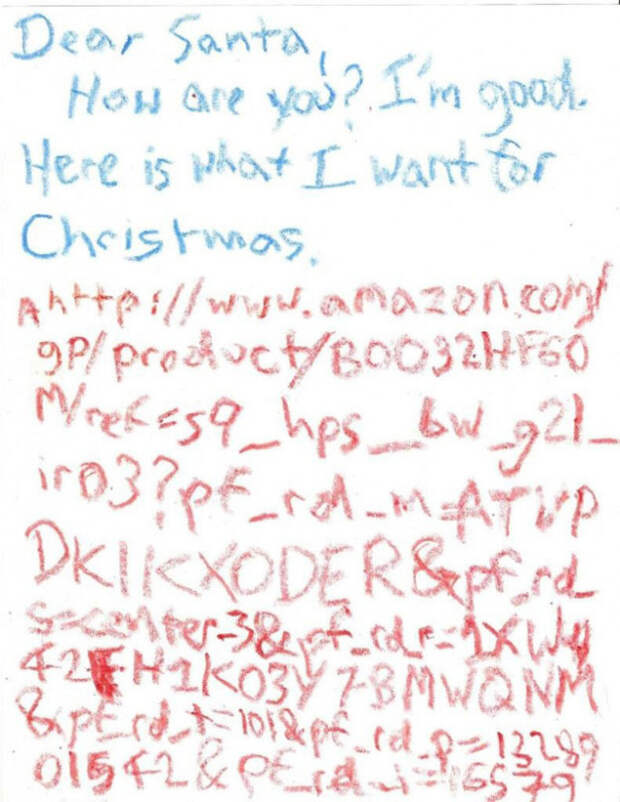 Dear Santa,
How are you? I'm good.
Here is what I want for
Christmas.
A http://www.amazon.com/
gp/product/B0032HF60
M/ref=s9_hps_bw_g21_
ir03?pf_rd_m=ATVP
DKIKX0DER&pf_rd_
s=center-3&pf_rd_r=1XWY
42FH1K03Y7BMWQNM
&pf_rd_t=101&pf_rd_p=13289
01542&pf_rd_i=165579